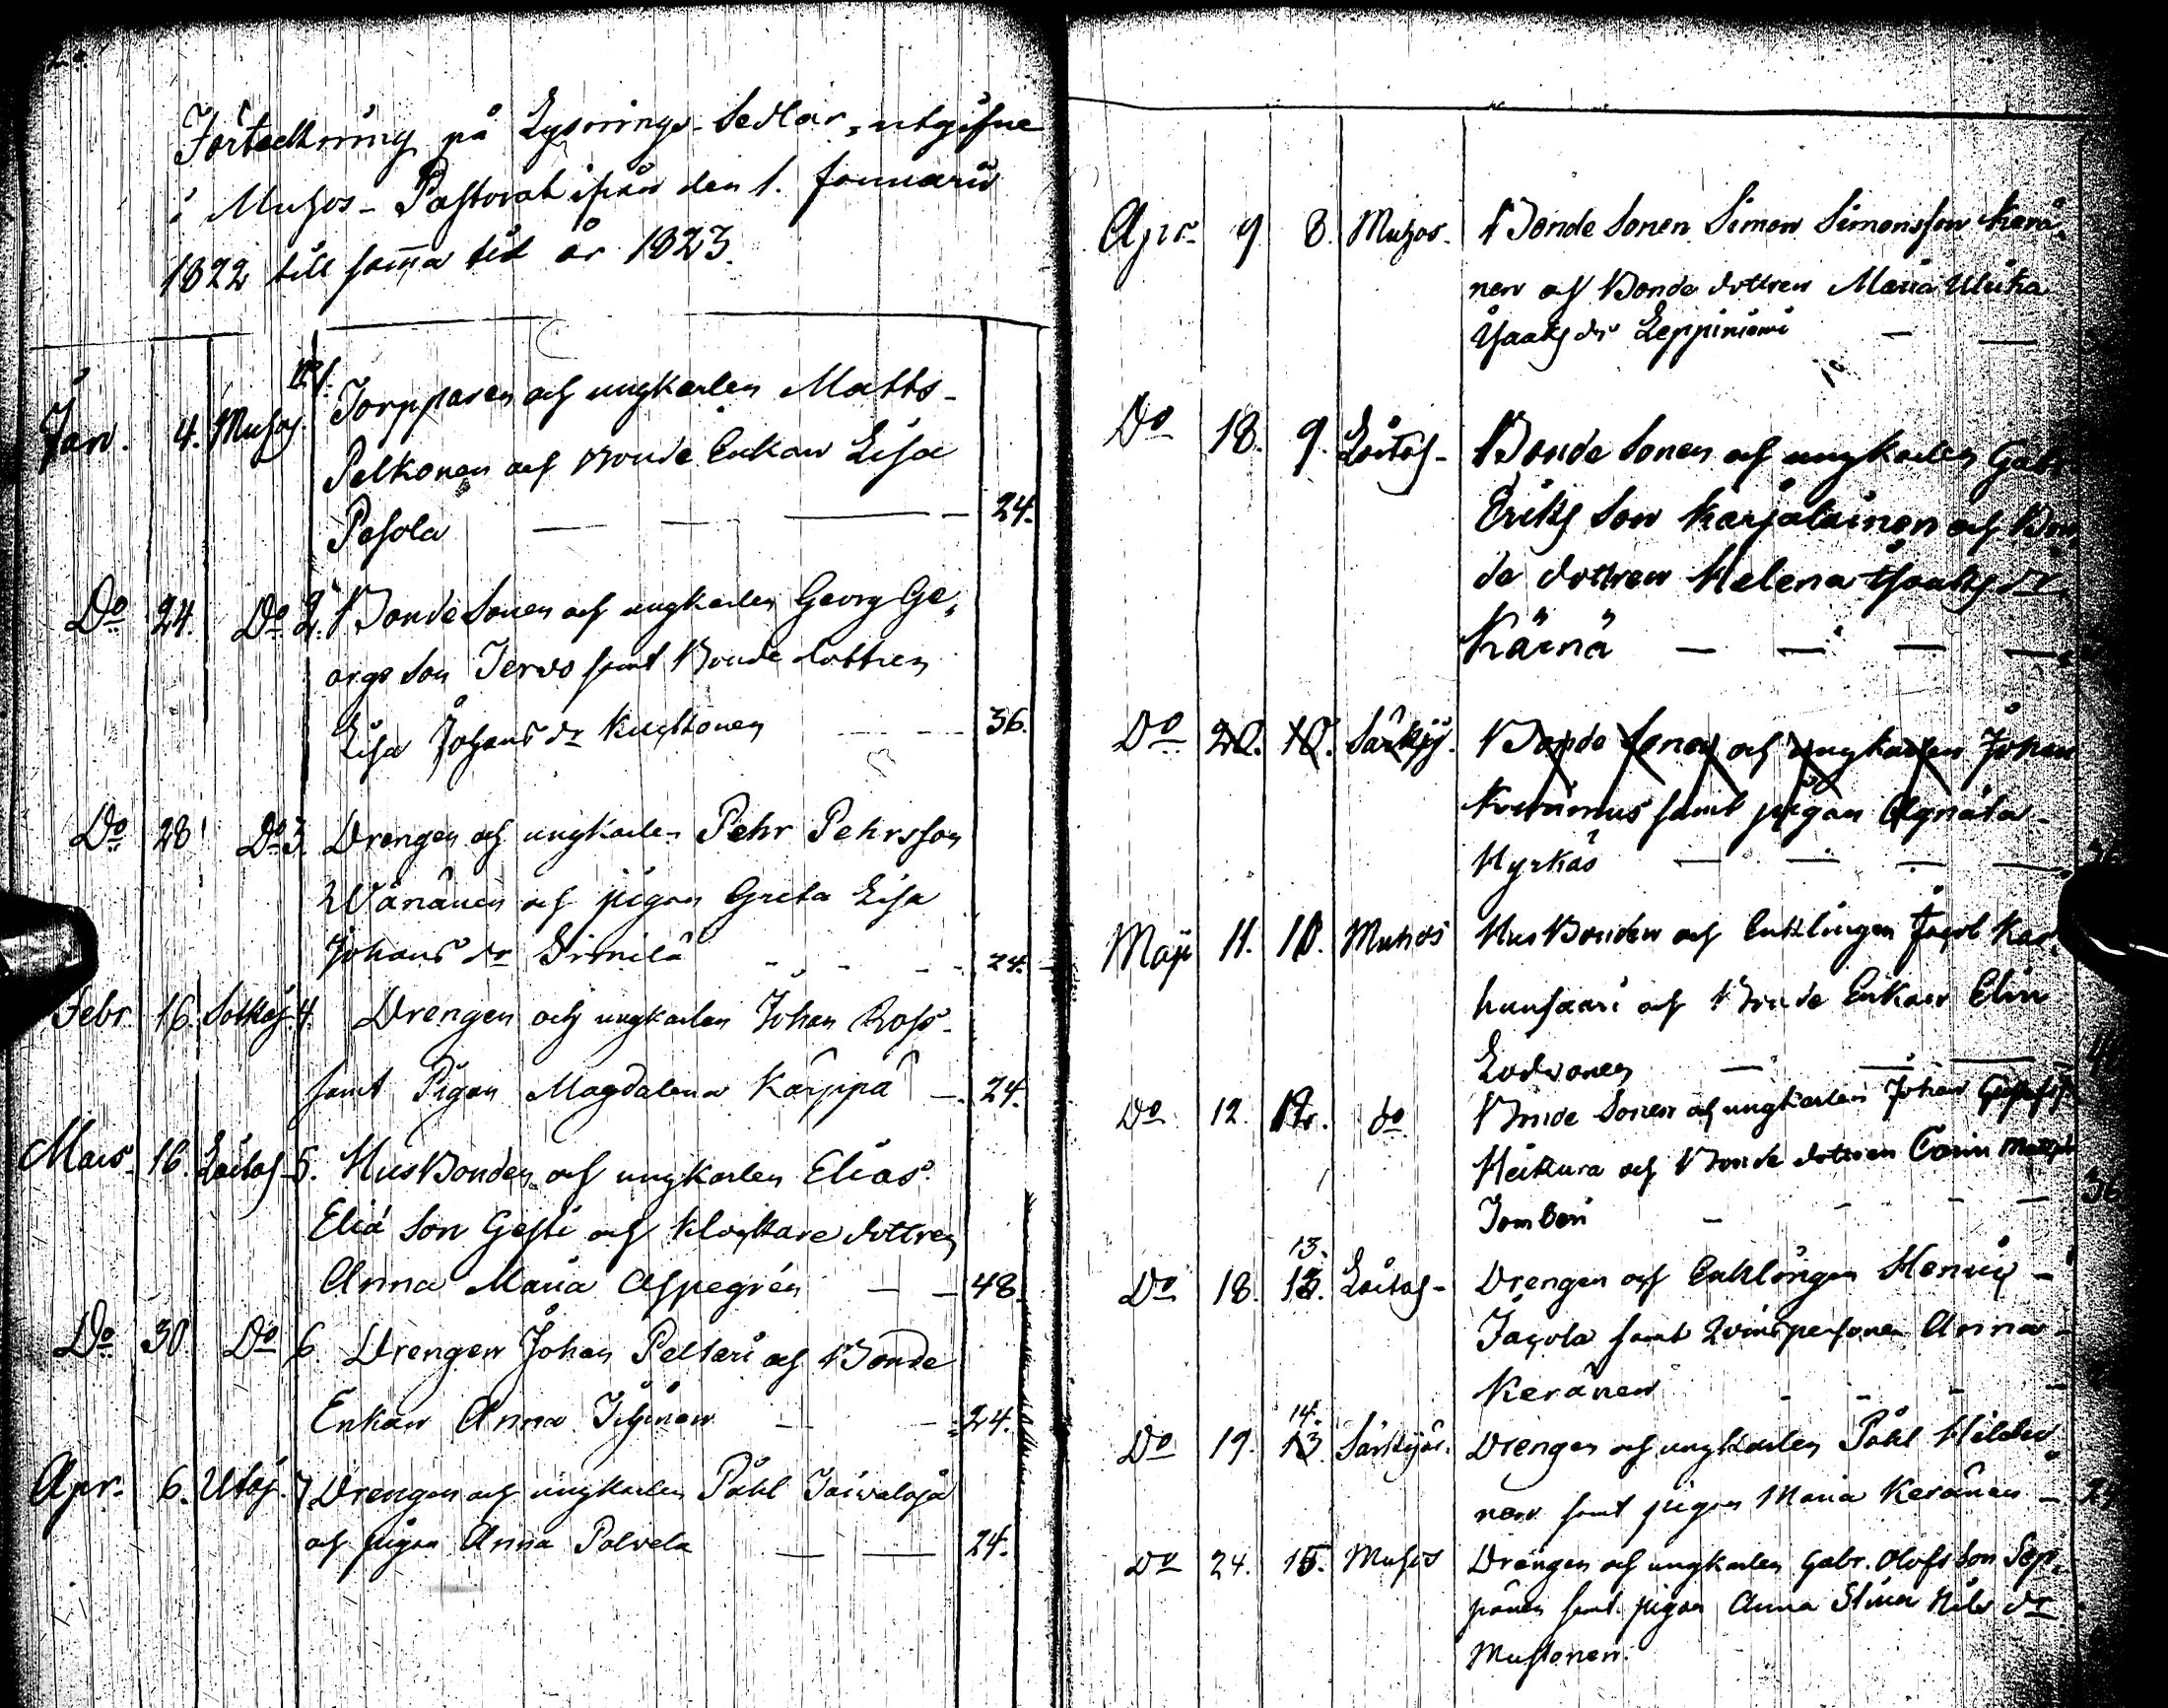 Förteckning på Lysnings-Sedlar, utgifne
i Muhos-Pastorat ifrån den 1. Januarii
1822 till samma tid år 1823.
Jan. 4. Muhos 1. Torpparen och ungkarlen Matts
Pelkonen och Bonde Enkan Lisa
Pesola — — — 24.
Do 24. Do 2. Bonde Sonen och ungkarlen Georg Ge,
orgs Son Jervo samt Bonde dottren
Lisa Johans dr Kusttonen — — 36.
Do 28 Do 3. Drengen och ungkarlen Pehr Pehrsson
Wänänen och pigan Greta Lisa
Johans dr Sirnilä - - - 24.
Febr. 16. Sotkaj. 4. Drengen och ungkarlen Johan Ross
samt Pigan Magdalena Karppa — 24.
Mars. 16. Loitaj. 5. Husbonden och ungkarlen Elias
Eliä Son Gesti och Klockare dottren
Anna Maria Aspegrén — — 48.
Do 30. Do 6. Drengen Johan Peltari och Bonde
Enkan Anna — — 24.
Apr. 6. Utaj. 7 Drengen och ungkarlen Påhl Toivalaja
och pigan Anna Polvela — — 24.
Apr. 9. 8. Muhos. Bonde Sonen Simon Simonsson Kerä,
nen och Bonde dottren Maria Ulrika
Isaaks dr Leppiniemi — —
Do 18. 9. Loitaj- Bonde Sonen och ungkarlen Gabr
Eriks Son Karjalainen och Bon,
de dottren Helena Isaaks dr
Kärnä — — — —
Do 20. 10. Särkij. Bonde Sonen och ungkarlen Johan
samt pigan Agnäta
Hyrkäs — — — —
Maji 11. 10. Muhos Husbonden och Enklingen Jacob Kar,
hunsaari och Bonde Enkan Elin
Lodvonen — — —
Do 12. do Bonde Sonen och ungkarlen Johan
Heikura och Bonde dottren Carin
Tomberi - - - — 36
13.
Do 18. 13. Loitaj- Drengen och Enklingen Henric
Jacola samt Qvinspersonen Anna
Keränen - - - —
14.
Do 19. 13. Särkijär. Drengen och ungkarlen Påhl Hildu
nen samt pigan Maria Keränen — 24
Do 24. 15. Muhos Drengen och ungkarlen Gabr. Olofs Son Sep,
pänen samt pigan Anna Stina Nils dr
Mustonen.